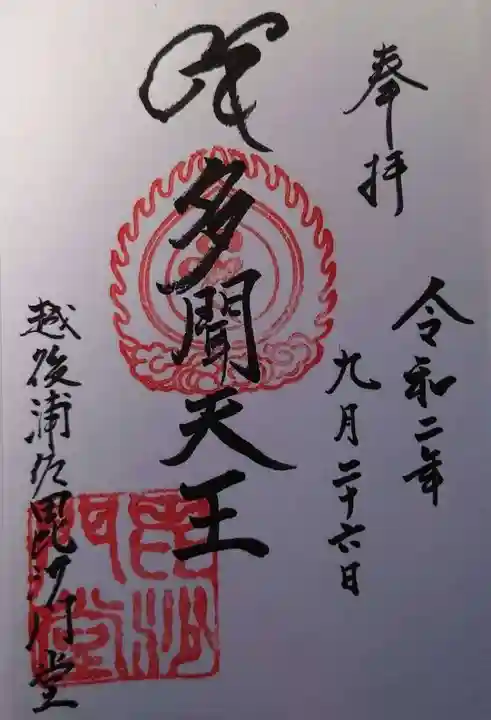 奉拝
令和二年
九月二十六日
多聞天王
越後浦佐毘沙門堂
毘沙門堂